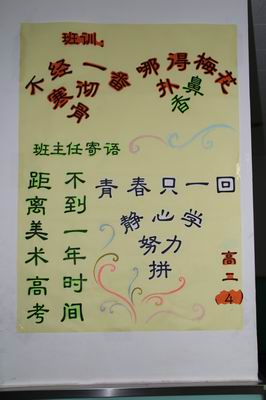 班训:
不经一番寒彻骨
哪得梅花扑鼻香
班主任寄语
距离美术高考
不到一年时间
青春只一回
静心学
努力
拼
高二
4